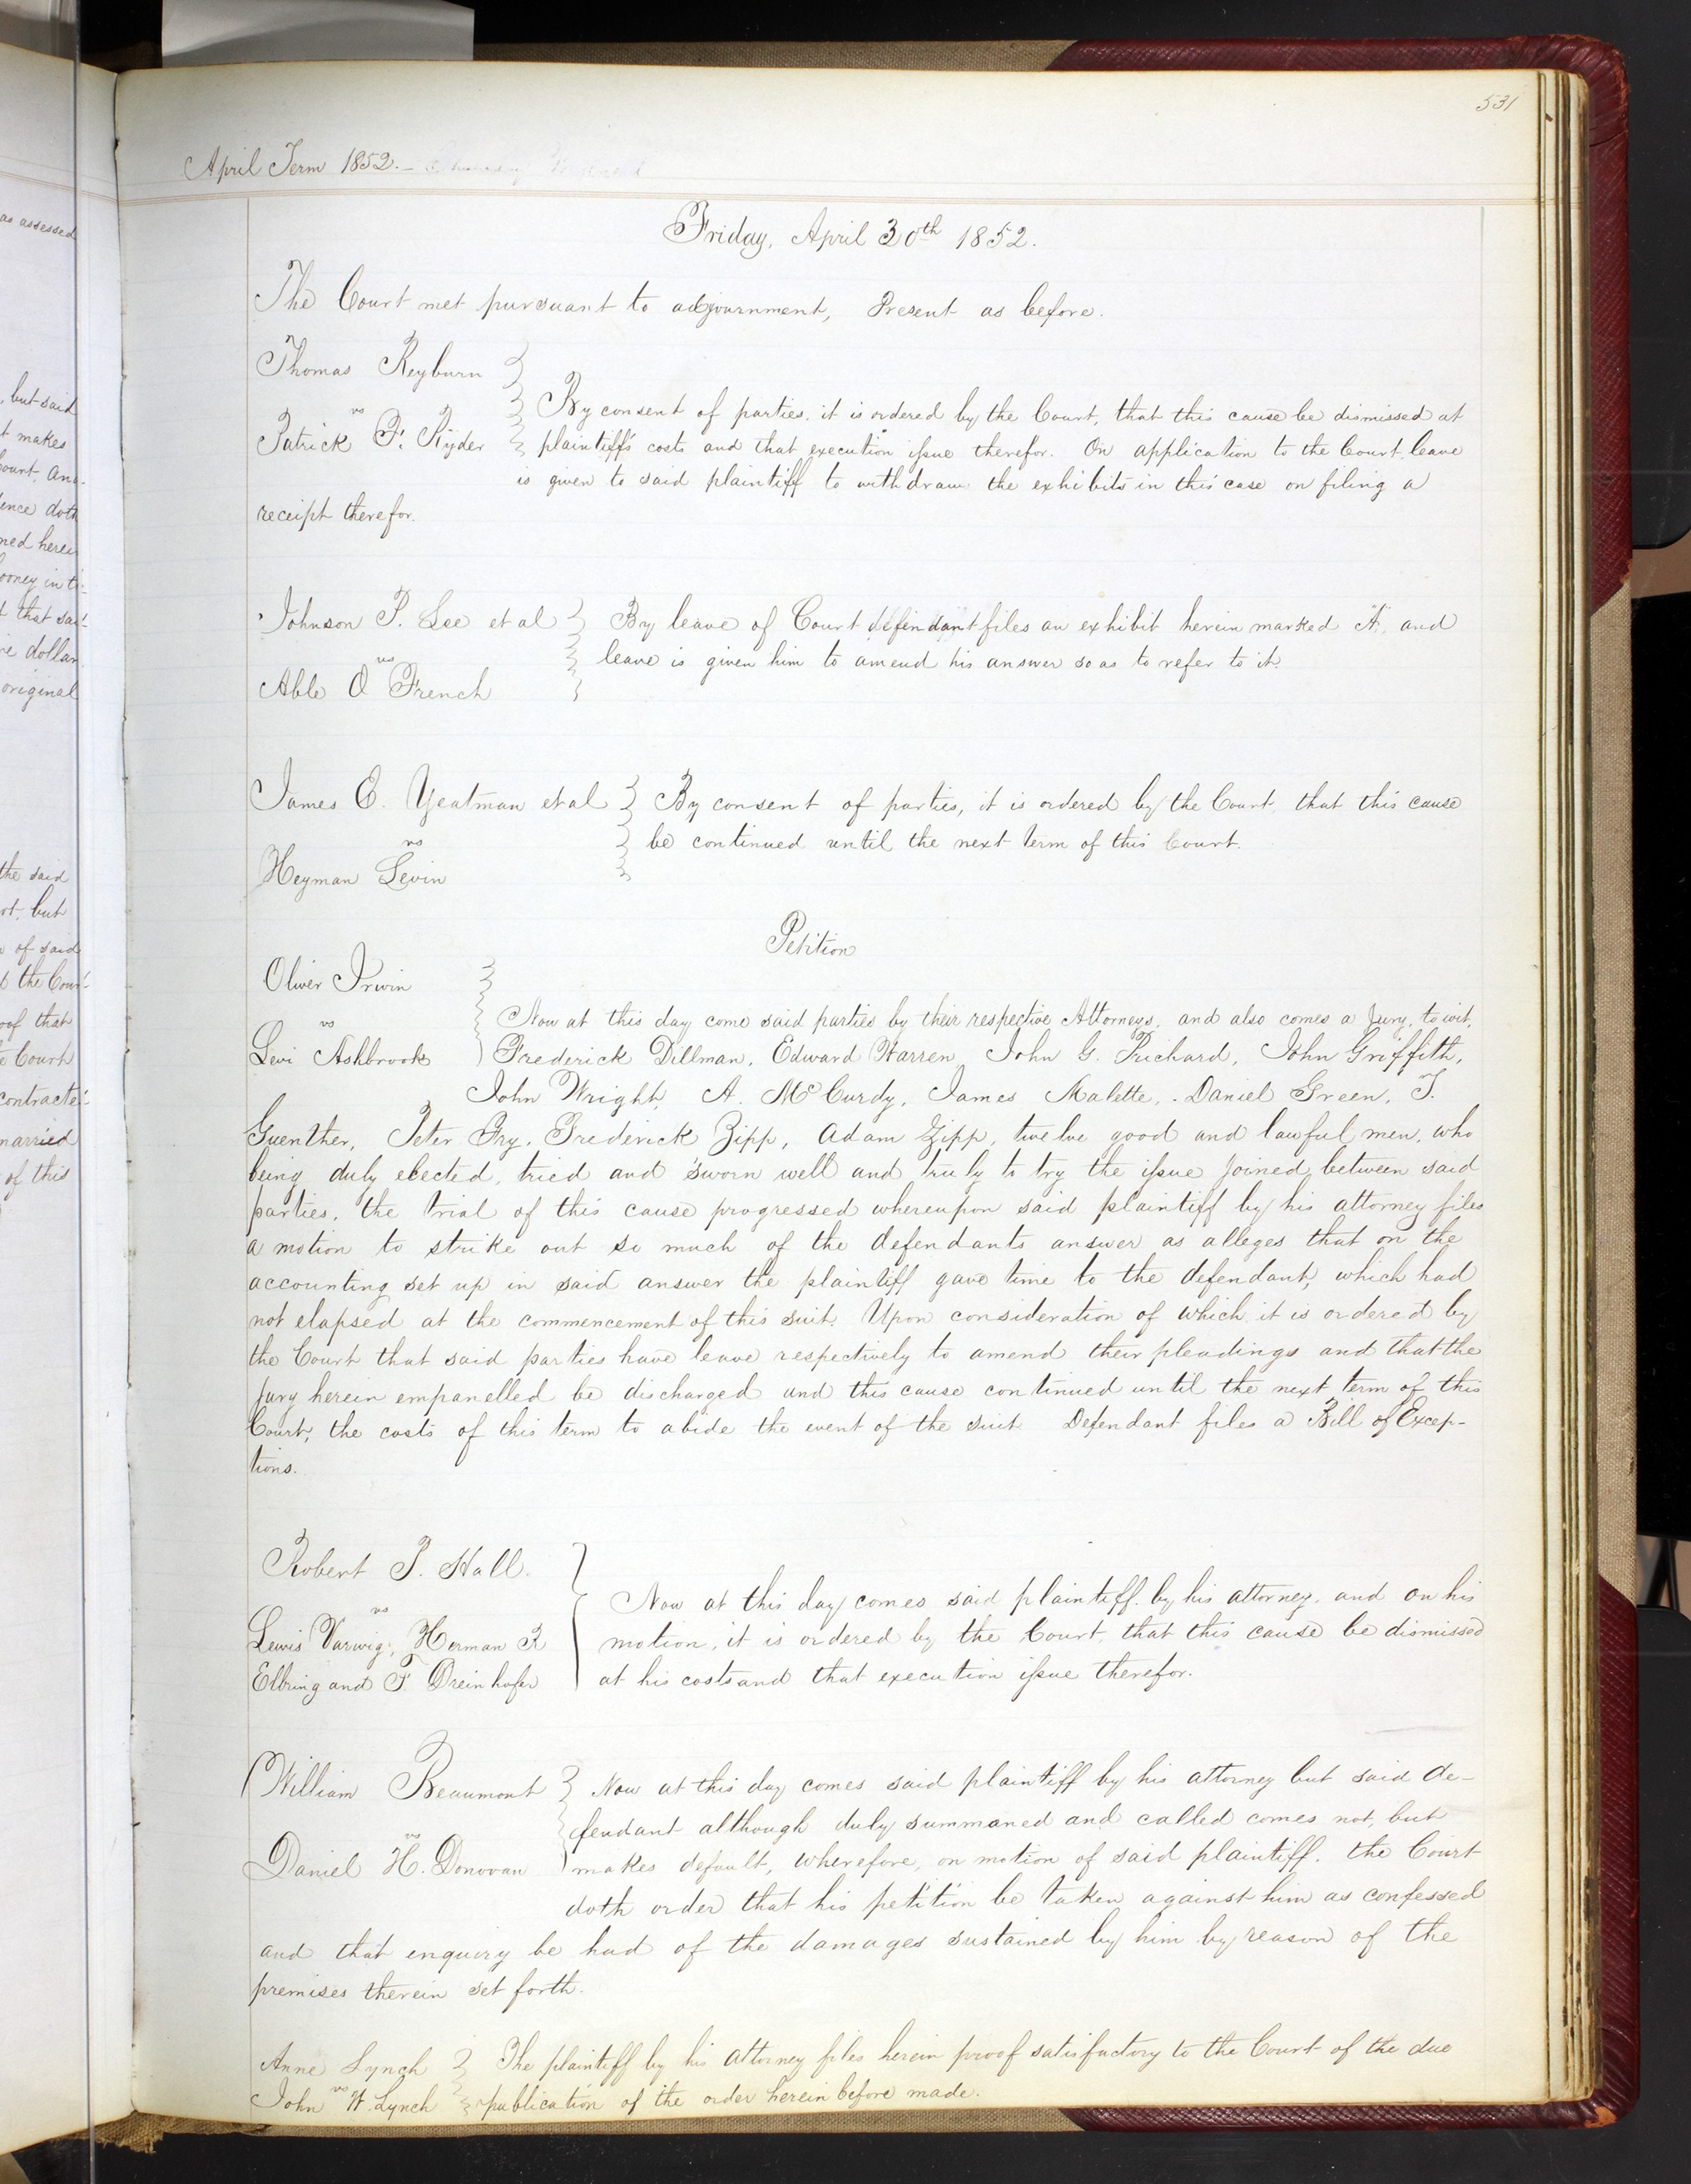 as assessed
, but said
t makes
ourt, and
ence doth
ned herein
ooney in
t that
e dollar
original
the said
ot, but
of said
the
oof that
Court
married
of this
531
April Term 1852.—
Friday, April 30th 1852.
The Court met pursuant to adjournment, Present as before.
Thomas Reyburn
vs
Patrick F. Ryder
By consent of parties. it is ordered by the Court, that this cause be dismissed at
plaintiff's costs and that execution issue therefor. On application to the Court, leave
is given to said plaintiff to withdraw the exhibits in this case on filing a
receipt therefor.
Johnson P. Lee et al
vs
Able O French
By leave of Court defendant files an exhibit herein marked A, and
leave is given him to amend his answer so as to refer to it.
James E. Yeatman et al
vs
Heyman Levin
By consent of parties, it is ordered by the Court, that this cause
be continued until the next term of this Court.
Petition
Oliver Irwin
vs
Levi Ashbrook
Now at this day come said parties by their respective Attorneys, and also comes a Jury, to wit,
Frederick Dillman, Edward Warren, John G. Prichard, John Griffith,
John Wright, A. McCurdy, James Malette, Daniel Green, T.
Guenther, Peter Fry, Frederick Zipp, Adam Zipp, twelve good and lawful men, who
being duly elected, tried and sworn well and truly to try the issue joined between said
parties, the trial of this cause progressed whereupon said plaintiff by his attorney files
a motion to strike out so much of the defendants answer as alleges that on the
accounting set up in said answer the plaintiff gave time to the defendant, which had
not elapsed at the commencement of this suit. Upon consideration of which it is ordered by
the Court that said parties have leave respectively to amend their pleadings and that the
jury herein empanelled be discharged and this cause continued until the next term of this
Court, the costs of this term to abide the event of the suit. Defendant files a Bill of Excep-
tions.
Robert P. Hall.
vs
Lewis Varwig, Herman R
Elbring and F. Dreinhofer
Now at this day comes said plaintiff by his attorney, and on his
motion, it is ordered by the Court, that this cause be dismissed
at his costs and that execution issue therefor.
William Beaumont
vs
Daniel H. Donovan
Now at this day comes said plaintiff by his attorney but said de-
fendant although duly summoned and called comes not, but
makes default, wherefore, on motion of said plaintiff. the Court
doth order that his petition be taken against him as confessed
and that enquiry be had of the damages sustained by him by reason of the
premises therein set forth.
Anne Lynch
vs
John W. Lynch
The plaintiff by his attorney files herein proof satisfactory to the Court of the due
publication of the order herein before made.